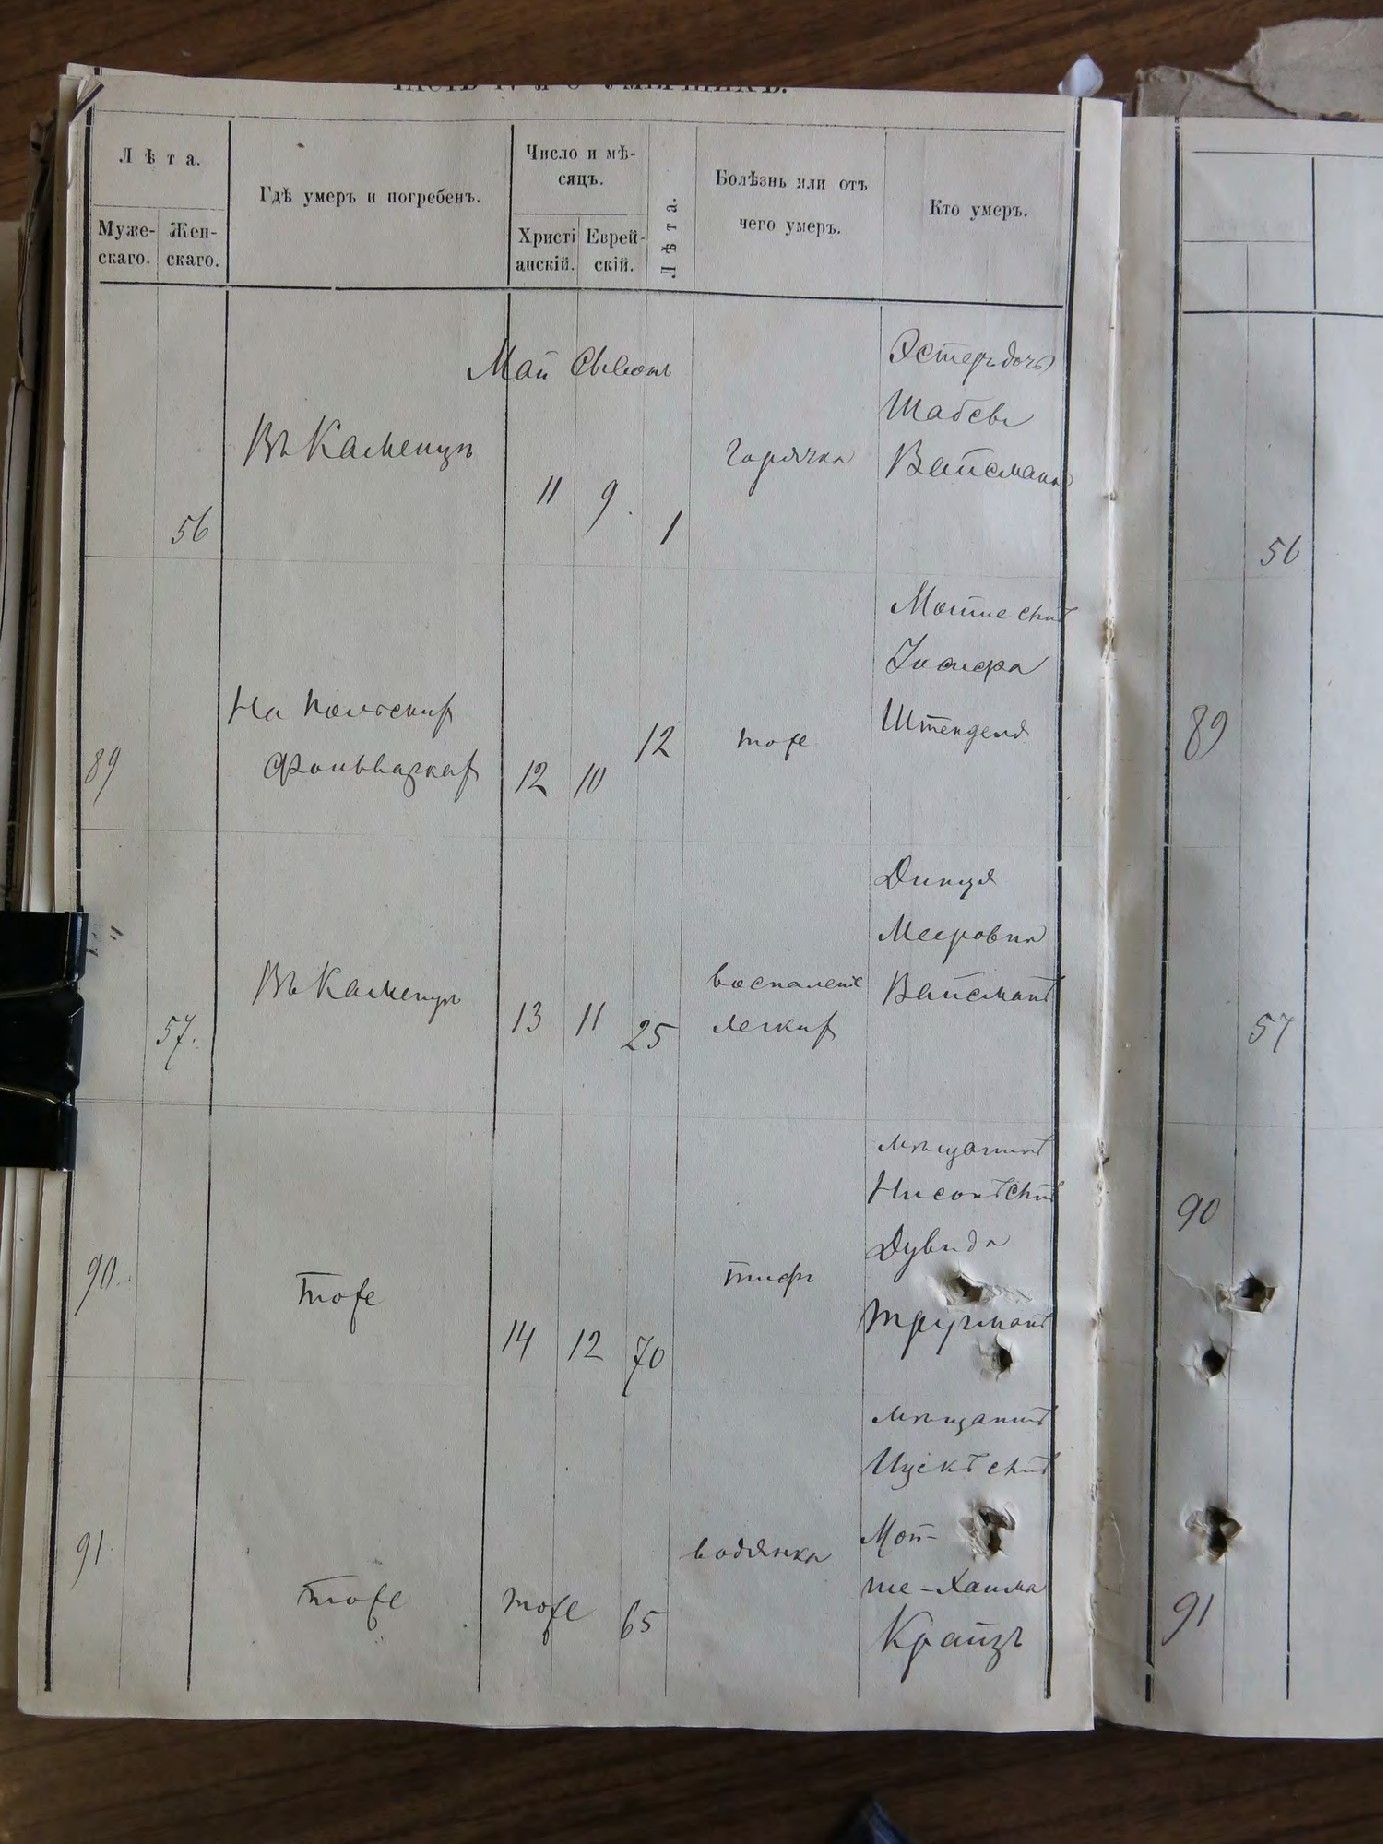 ЧАСТЬ IV-я О УМЕРШИХЪ.
Лѣта.
Муже-
скаго.
Жен-
скаго.
Гдѣ умеръ и погребенъ.
Число и мѣ-
сяцъ.
Христі
анскій.
Еврей-
скій.
Лѣта.
Болѣзнь или отъ
чего умеръ.
Кто умеръ.
Май Сивонъ
56
Въ Каменцѣ
11 9. 1
горячка
Эстеръ дочь
Вайсмана
56
89
На Польскихъ
Фольваркахъ
12 10 12
тоже
Мотие сынъ
Штенделя
89
57.
Въ Каменцѣ
13 11 25
воспаленіе
легкихъ
Динця
Мееровна
Вайсманъ
57
90.
тоже
14 12 70
тифъ
мѣщанинъ
Нисонъ сынъ
Дувида
90
91.
тоже
тоже 65
водянка
мѣщанинъ
Ицекъ сынъ
Мот-
те-Хаима
Крайзъ
91